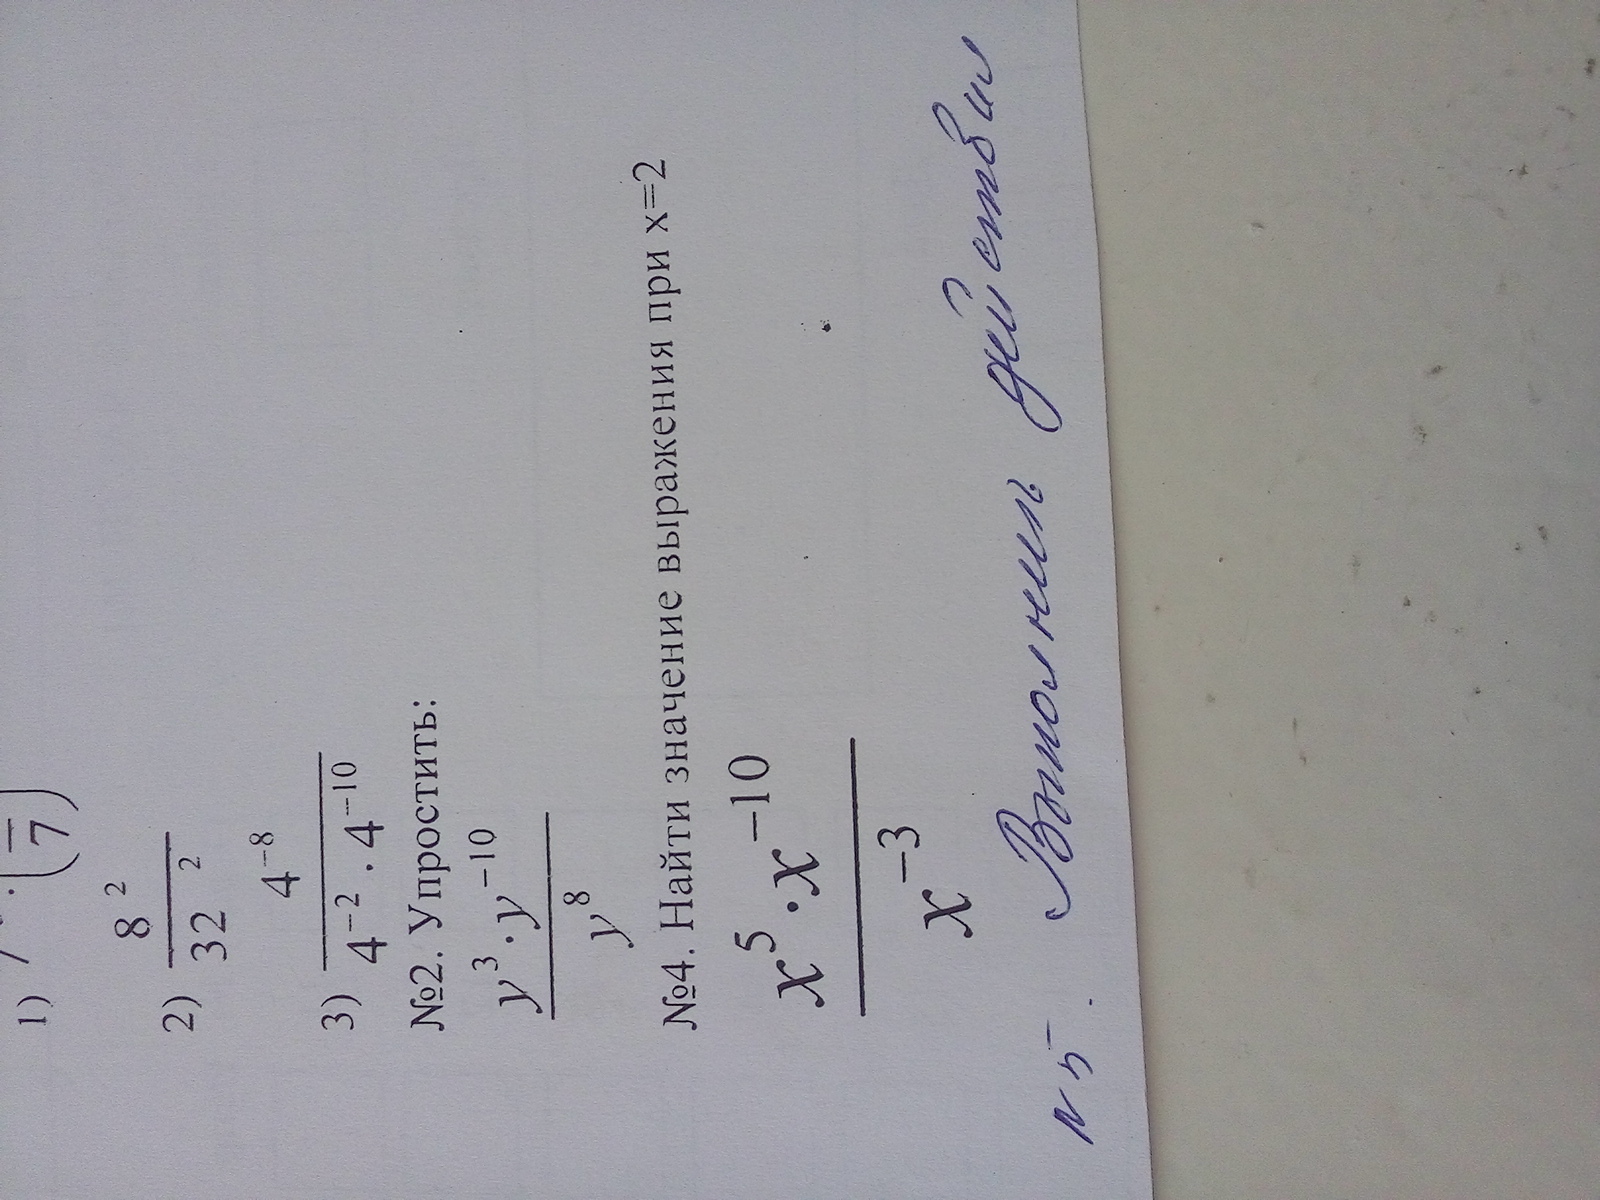 1) 7 · (— 7)
2) 8² / 32²
3) 4⁻⁸ / 4⁻² · 4⁻¹⁰
№2. Упростить:
y³ · y⁻¹⁰ / y⁸
№4. Найти значение выражения при x=2
x⁵ · x⁻¹⁰ / x⁻³
N5. Выполнить действия